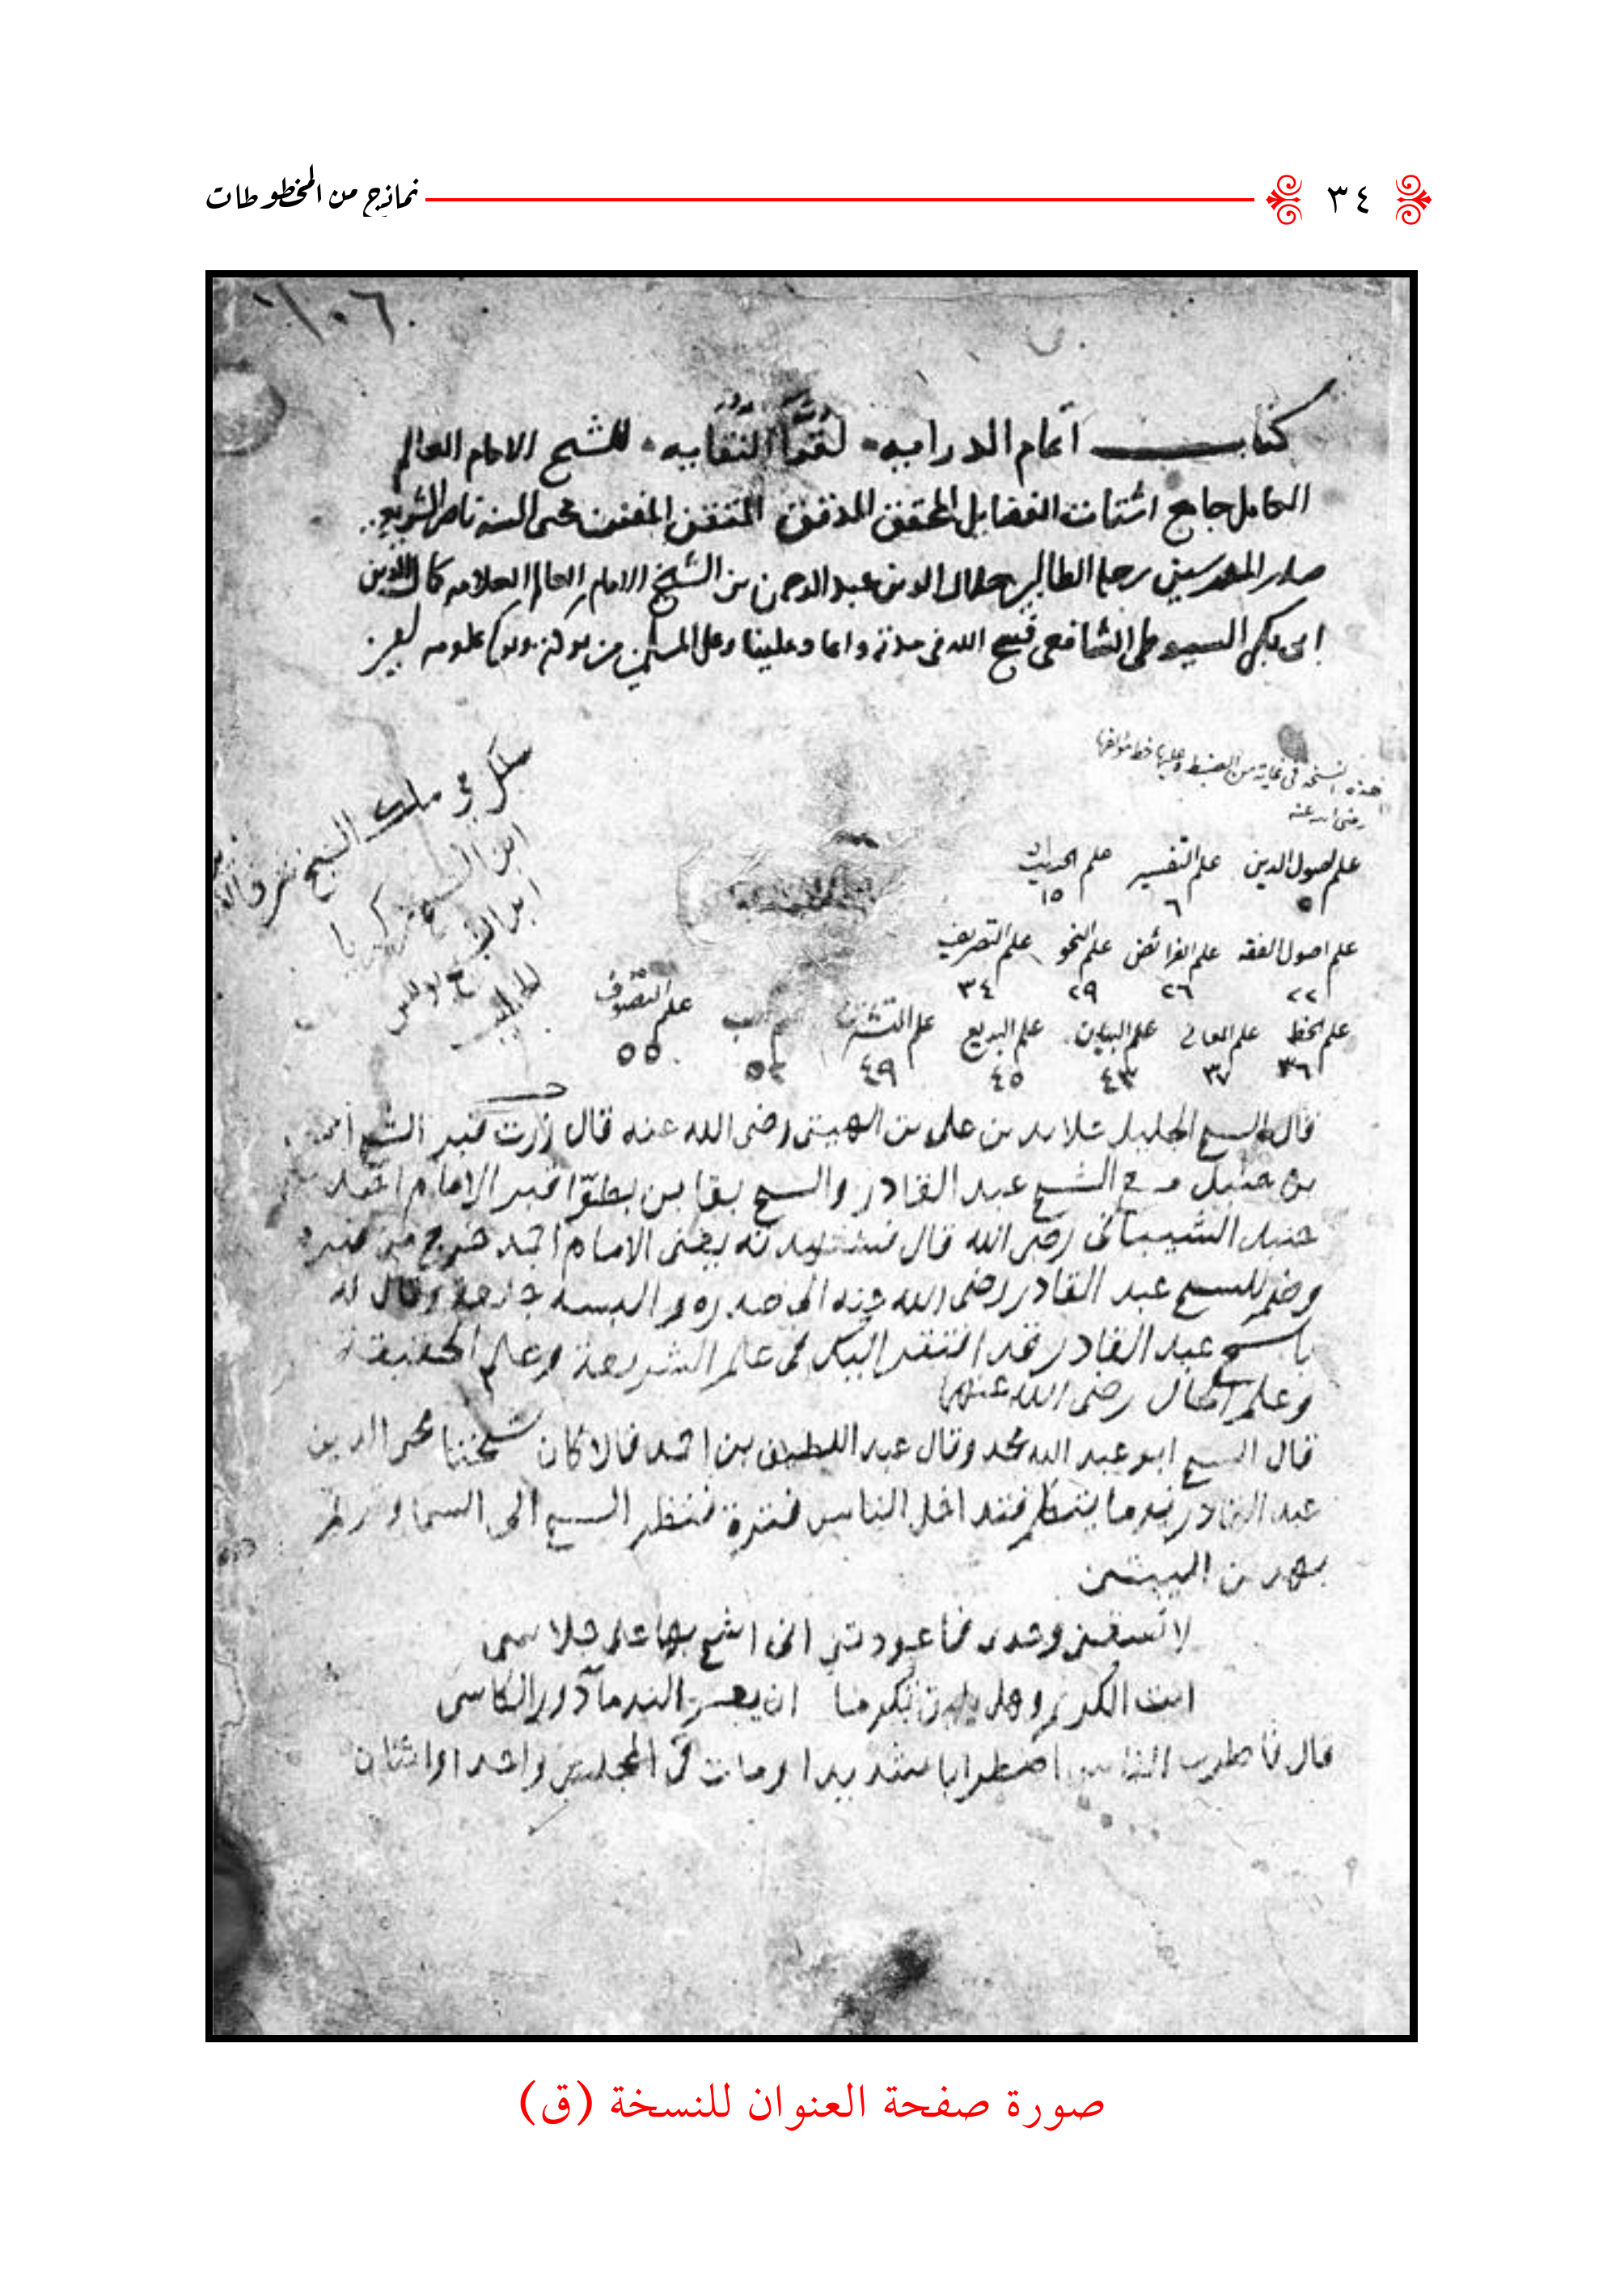 ٣٤
نماذج من المخطوطات
١٠٦
كتاب اتمام الدرايه لقرّاء النّقايه للشيخ الامام العالم
الكامل جامع اشتات الفضايل المحقق المدقق المتقن المفنن محى السنه ناصر الشريعه
صدر المدرسين رحلة الطالبين جلال الدين عبد الرحمن بن الشيخ الامام العالم العلامه كمال الدين
ابى بكر السيوطى الشافعى فسح الله فى مدته واعاد علينا وعلى المسلمين من بركته وبركة علومه
هذه النسخة فى غاية من الضبط وعليها خط مؤلفها
رضى الله عنه
علم اصول الدين علم التفسير علم الحديث
٥ ٦ ١٥
علم اصول الفقه علم الفرائض علم النحو علم التصريف
٢٢ ٢٦ ٢٩ ٣٤
علم الخط علم المعانى علم البيان علم البديع علم التشريح علم الطب علم التصوف
٣٦ ٣٧ ٤٣ ٤٥ ٤٩ ٥٣ ٥٥
فى ملك الشيخ شرف الدين
ابن الشيخ زكريا
ابن الشيخ يونس
قال الشيخ الجليل على بن الهيتى رضى الله عنه قال زرت قبر الشيخ احمد
بن حنبل مع الشيخ عبد القادر والشيخ بقا بن بطوّا قبر الامام احمد
حنبل الشيبانى رضى الله قال فشهدته يعنى الامام احمد خرج من قبره
وضم للشيخ عبد القادر رضى الله عنه الى صدره والبسه وقال له
ياشيخ عبد القادر قد افتقر اليك فى علم الشريعة وعلم الحقيقة
وعلم الحال رضى الله عنهما
قال الشيخ ابو عبد الله محمد وقال عبد اللطيف بن احمد قالا كان شيخنا محى الدين
عبد القادر يوما يتكلم فتداخل الناس فترة فنظر الشيخ الى السما
بهدين البيتين
لا تسقنى وحدى فما عودتنى انى اشح بها على جلاسى
انت الكريم وهل يليق تكرما ان يعبر الندمآ دور الكاسى
قال فاضطرب الناس اضطرابا شديدا ومات فى المجلس واحد او اثنان
صورة صفحة العنوان للنسخة (ق)